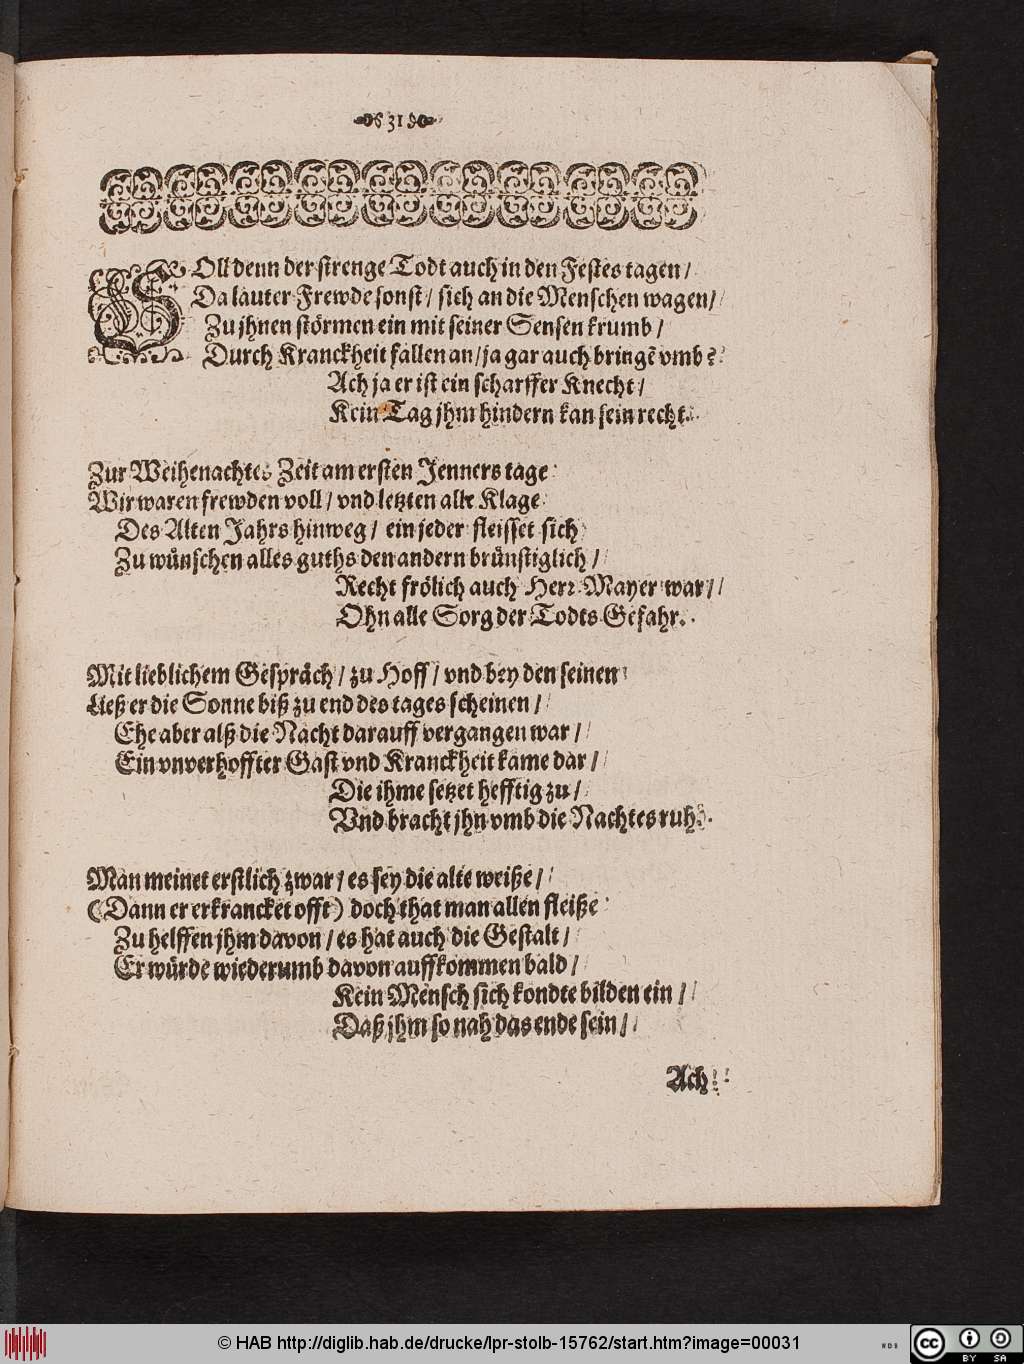 31
SOll denn der strenge Todt auch in den Festes tagen /
Da lauter Frewde sonst / sich an die Menschen wagen /
Zu jhnen störmen ein mit seiner Sensen krumb /
Durch Kranckheit fallen an / ja gar auch bringẽ vmb?
Ach ja er ist ein scharffer Knecht /
Kein Tag jhm hindern kan sein recht.
Zur Weihenachtes Zeit am ersten Jenners tage
Wir waren frewden voll / vnd letzten alle Klage
Des Alten Jahrs hinweg / ein jeder fleisset sich
Zu wünschen alles guths den andern brünstiglich /
Recht frölich auch Herr Mayer war /
Ohn alle Sorg der Todts Gefahr.
Mit lieblichem Gespräch / zu Hoff / vnd bey den seinen
Ließ er die Sonne biß zu end des tages scheinen /
Ehe aber alß die Nacht darauff vergangen war /
Ein vnverhoffter Gast vnd Kranckheit kame dar /
Die ihme setzet hefftig zu /
Vnd bracht jhn vmb die Nachtes ruh.
Man meinet erstlich zwar / es sey die alte weiße /
(Dann er erkrancket offt) doch that man allen fleiße
Zu helffen jhm davon / es hat auch die Gestalt /
Er würde wiederumb davon auffkommen bald /
Kein Mensch sich kondte bilden ein /
Daß jhm so nah das ende sein /
Ach!
© HAB http://diglib.hab.de/drucke/lpr-stolb-15762/start.htm?image=00031
WDB
cc BY SA